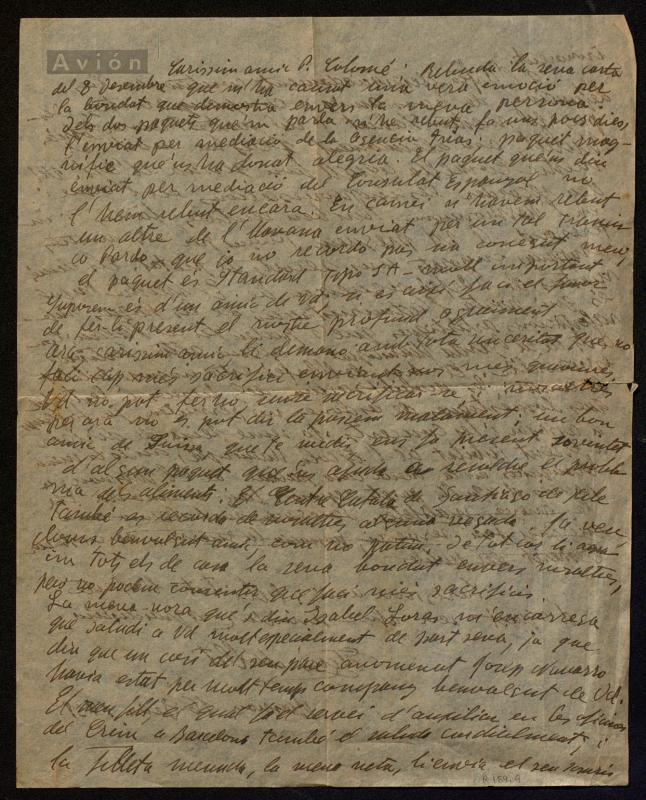 Avión
Caríssim amic P. Colomé: Rebuda la seva carta
del 8 desembre que m'ha causat una vera emoció per
la bondat que demostra envers la meva persona.
Dels dos paquets que'm parla n'he rebut fa uns pocs dies,
l'enviat per mediació de la Agencia Arias: paquet mag-
nífic que'ns ha donat alegria. El paquet que'ns diu
enviat per mediació del Consulat Espanyol no
l'hem rebut encara. En canvi n'havem rebut
un altre de l'Havana enviat per un tal Francis
co Pardo - que jo no recordo pas un conegut meu,
el paquet és Standard Tipo 5A - molt important
Suposem és d'un amic de Vd; si és així faci el favor
de fer-li present el nostre profund agraiment.
Ara, caríssim amic li demano amb tota sinceritat que no
faci cap més sacrifici enviant-nos més queviures,
Vd no pot fer-ho sense sacrificar-se i nosaltres
per ara no es pot dir la passem malament; un bon
amic de Suïssa, que fa medis ens fa present sovintet
d'algun paquet que'ns ajuda a resoldre el proble
ma dels aliments. El Centre Català de Santiago de Xile
també es recorda de nosaltres alguna vegada. Ja veu
doncs benvolgut amic com no patim. De tot cor li agra-
ïm tots els de casa la seva bondat envers nosaltres,
però no podem consentir que faci més sacrificis.
La meva nora que's diu Isabel Loras m'encarrega
que saludi a Vd molt especialment de part seva, ja que
diu que un cosí del seu pare anomenat Josep Navarro
havia estat per molt temps company benvolgut de Vd.
El meu fill el qual fa el servei d'auxiliar en les oficines
del Crèdit a Barcelona també el saluda cordialment; i
la filleta menuda, la meva neta, li envia el seu somrís
R 189.9